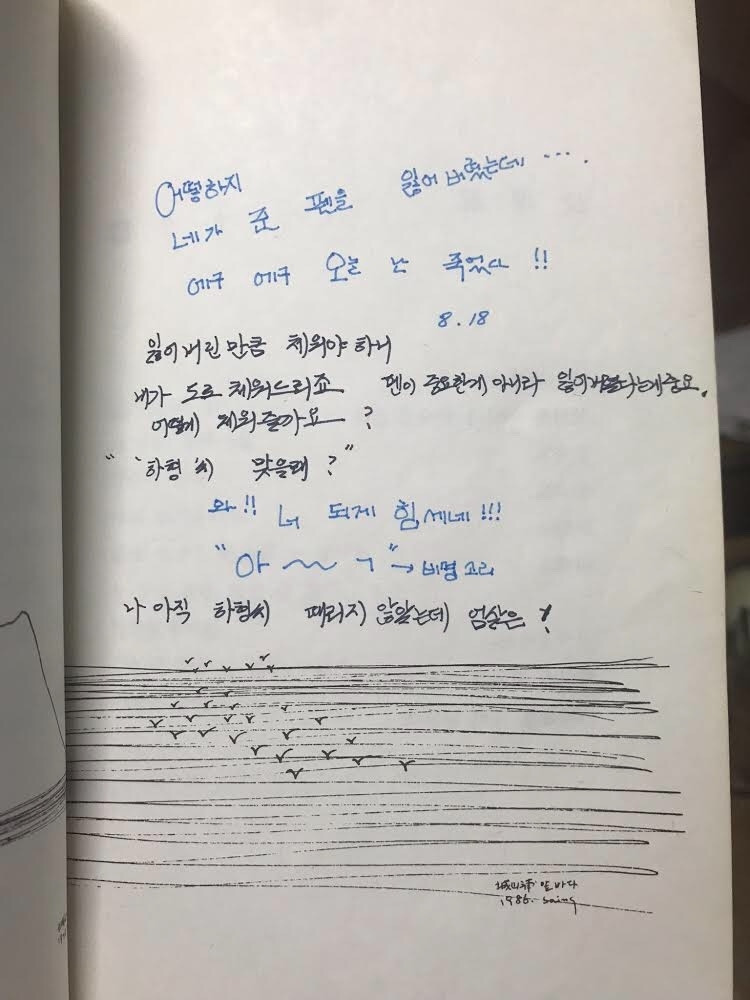 어떻하지
네가 준 펜을 잃어 버렸는데 ….
에구 에구 오늘 난 죽었다 !!
8.18
잃어버린 만큼 채워야 하니
내가 도로 채워드리죠 펜이 중요한게 아니라 잃어버렸다는게 중요.
어떻게 채워줄까요 ?
“ 하형 씨 맞을래 ? ”
와 !! 너 되게 힘 세네 !!!
“ 아 ~~ ㄱ ” → 비명 소리
나 아직 하형씨 때리지 않았는데 엄살은 !
앞바다
1986. saing